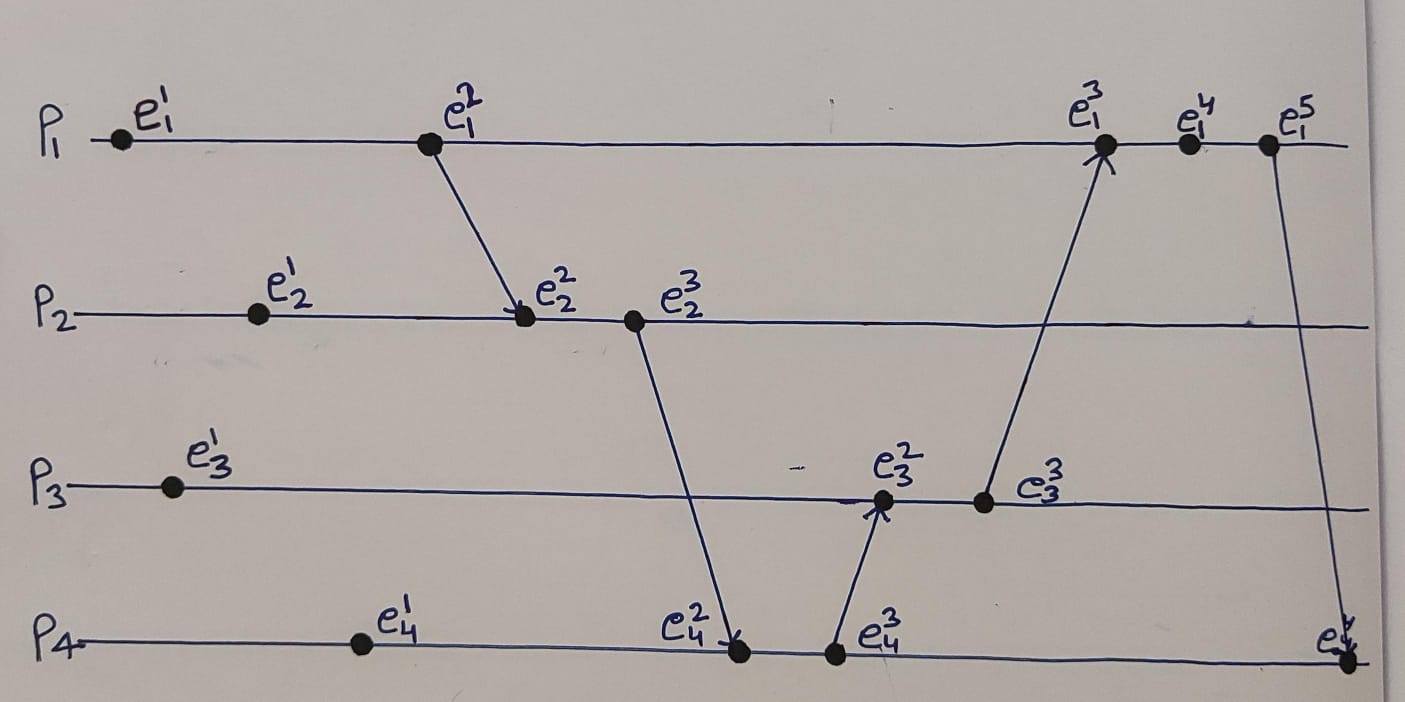 P₁ e₁¹ e₁² e₁³ e₁⁴ e₁⁵
P₂ e₂¹ e₂² e₂³
P₃ e₃¹ e₃² e₃³
P₄ e₄¹ e₄² e₄³